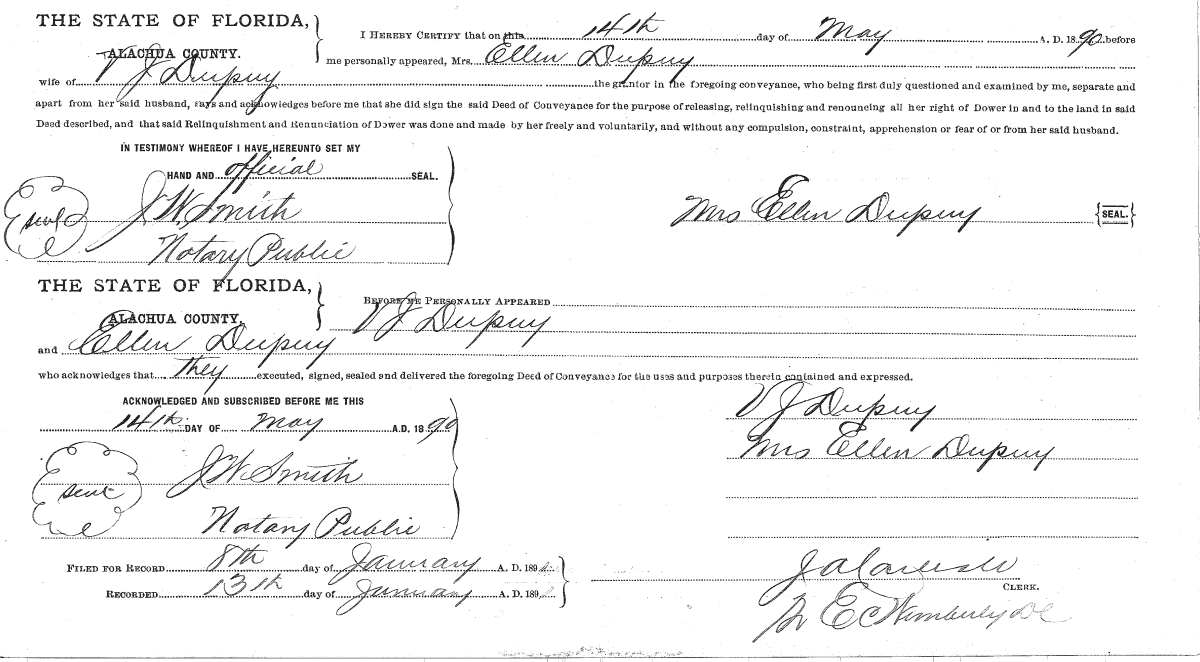 THE STATE OF FLORIDA, I HEREBY CERTIFY that on this 14th day of May A. D. 1890 before
ALACHUA COUNTY. me personally appeared, Mrs. Ellen Dupuy
wife of V J Dupuy the grantor in the foregoing conveyance, who being first duly questioned and examined by me, separate and
apart from her said husband, says and acknowledges before me that she did sign the said Deed of Conveyance for the purpose of releasing, relinquishing and renouncing all her right of Dower in and to the land in said
Deed described, and that said Relinquishment and Renunciation of Dower was done and made by her freely and voluntarily, and without any compulsion, constraint, apprehension or fear of or from her said husband.
IN TESTIMONY WHEREOF I HAVE HEREUNTO SET MY
HAND AND official SEAL.
seal J W Smith Mrs Ellen Dupuy {SEAL.}
Notary Public
THE STATE OF FLORIDA, BEFORE ME PERSONALLY APPEARED
ALACHUA COUNTY, V J Dupuy
and Ellen Dupuy
who acknowledges that they executed, signed, sealed and delivered the foregoing Deed of Conveyance for the uses and purposes therein contained and expressed.
ACKNOWLEDGED AND SUBSCRIBED BEFORE ME THIS V J Dupuy
14th DAY OF May A.D. 1890
Mrs Ellen Dupuy
seal J W Smith
Notary Public
FILED FOR RECORD 8th day of January A. D. 189
RECORDED 13th day of January A. D. 189 CLERK.
E C Wimberly DC